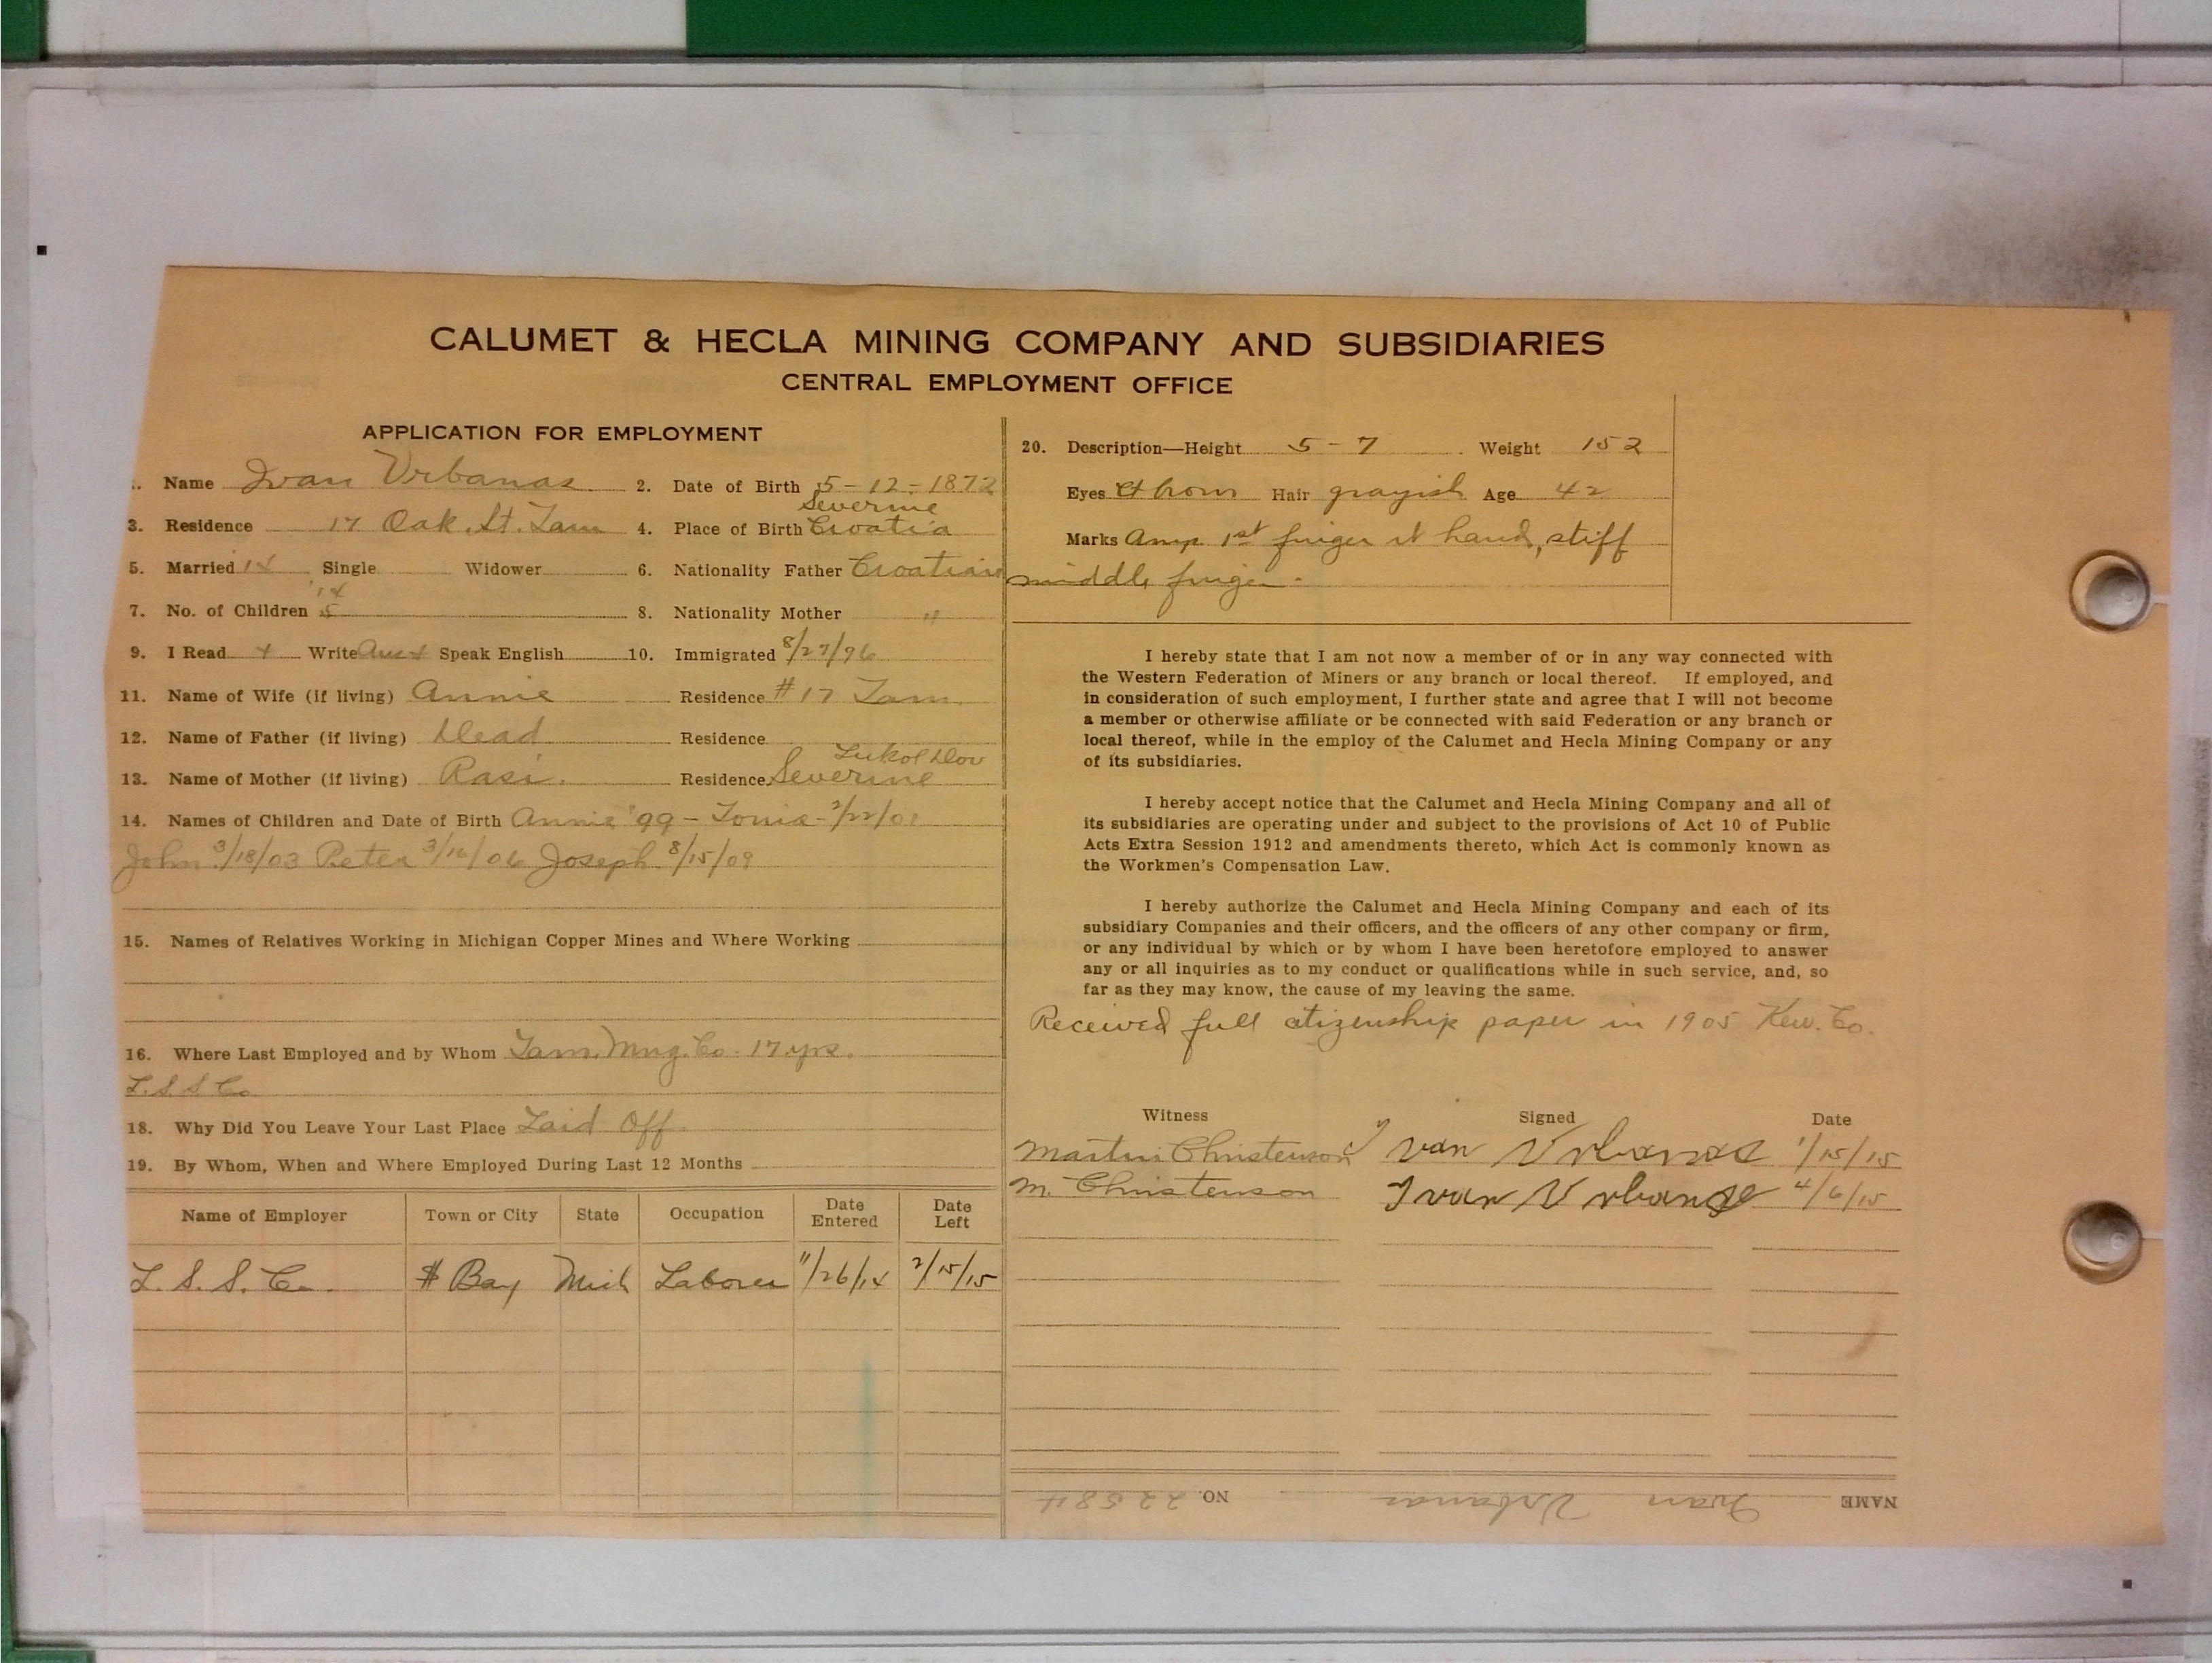 CALUMET & HECLA MINING COMPANY AND SUBSIDIARIES
CENTRAL EMPLOYMENT OFFICE
APPLICATION FOR EMPLOYMENT
Name Ivan Vrbanas 2. Date of Birth 5-12-1872
Severine
3. Residence 17 Oak St. Tam 4. Place of Birth Croatia
5. Married 14 Single Widower 6. Nationality Father Croatian
14
7. No. of Children 5 8. Nationality Mother "
9. I Read Write Speak English 10. Immigrated 8/27/96
11. Name of Wife (if living) Annie Residence #17 Tam.
12. Name of Father (if living) Dead Residence
13. Name of Mother (if living) Rasi. Residence Severine
14. Names of Children and Date of Birth Annie '99 - Tonia - 2/22/01
John 3/18/03 Peter 3/16/06 Joseph 8/15/09
15. Names of Relatives Working in Michigan Copper Mines and Where Working
16. Where Last Employed and by Whom Tam. Mng. Co. 17 yrs.
L.S.S Co
18. Why Did You Leave Your Last Place Laid Off.
19. By Whom, When and Where Employed During Last 12 Months
Name of Employer Town or City State Occupation Date Entered Date Left
L. S. S. Co. # Bay Mich Laborer 11/26/14 2/15/15
20. Description—Height 5-7 Weight 152
Eyes Hair grayish Age 42
Marks Amp 1st finger rt hand, stiff
middle finger.
I hereby state that I am not now a member of or in any way connected with
the Western Federation of Miners or any branch or local thereof. If employed, and
in consideration of such employment, I further state and agree that I will not become
a member or otherwise affiliate or be connected with said Federation or any branch or
local thereof, while in the employ of the Calumet and Hecla Mining Company or any
of its subsidiaries.
I hereby accept notice that the Calumet and Hecla Mining Company and all of
its subsidiaries are operating under and subject to the provisions of Act 10 of Public
Acts Extra Session 1912 and amendments thereto, which Act is commonly known as
the Workmen's Compensation Law.
I hereby authorize the Calumet and Hecla Mining Company and each of its
subsidiary Companies and their officers, and the officers of any other company or firm,
or any individual by which or by whom I have been heretofore employed to answer
any or all inquiries as to my conduct or qualifications while in such service, and, so
far as they may know, the cause of my leaving the same.
Received full citizenship paper in 1905 Kew. Co.
Witness Signed Date
Martin Christenson Ivan Vrbanas 1/15/15
M. Christenson Ivan Vrbanas 4/6/15
NAME Ivan Vrbanas NO. 22584